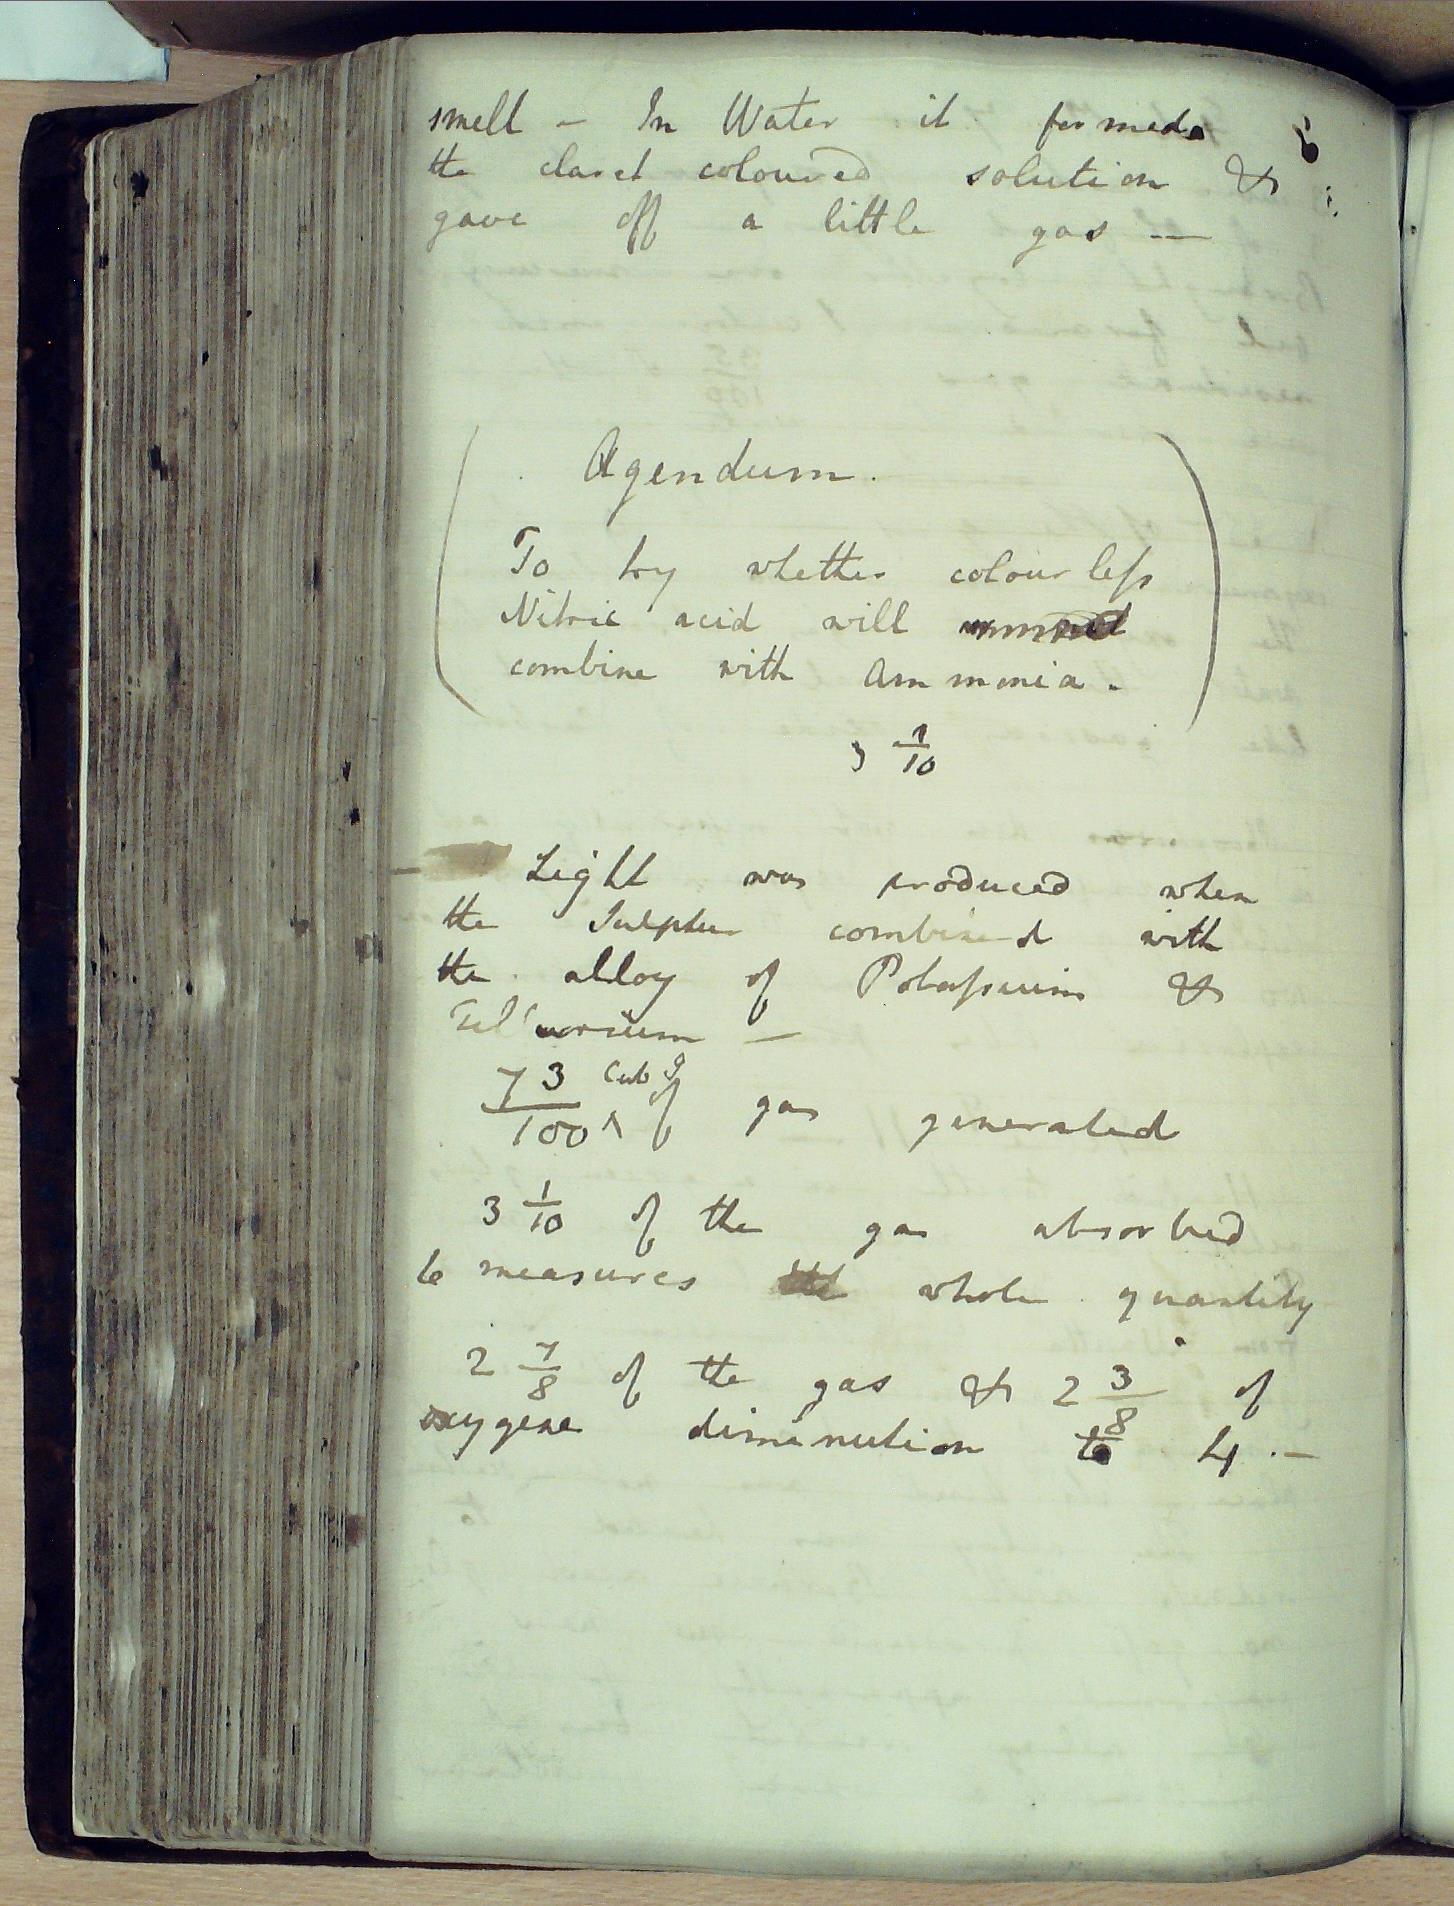 smell – In Water it formed
the claret coloured solution &
gave off a little gas —
Agendum.
To try whether colourless
Nitric acid will
combine with Ammonia.
3 1/10
– Light was produced when
the Sulphur combined with
the alloy of Potassium &
Tellurium —
73/100 Cub I of gas generated
3 1/10 of the gas absorbed
6 measures whole quantity
2 7/8 of the gas & 2 3/8 of
oxygene diminution to 4 . —